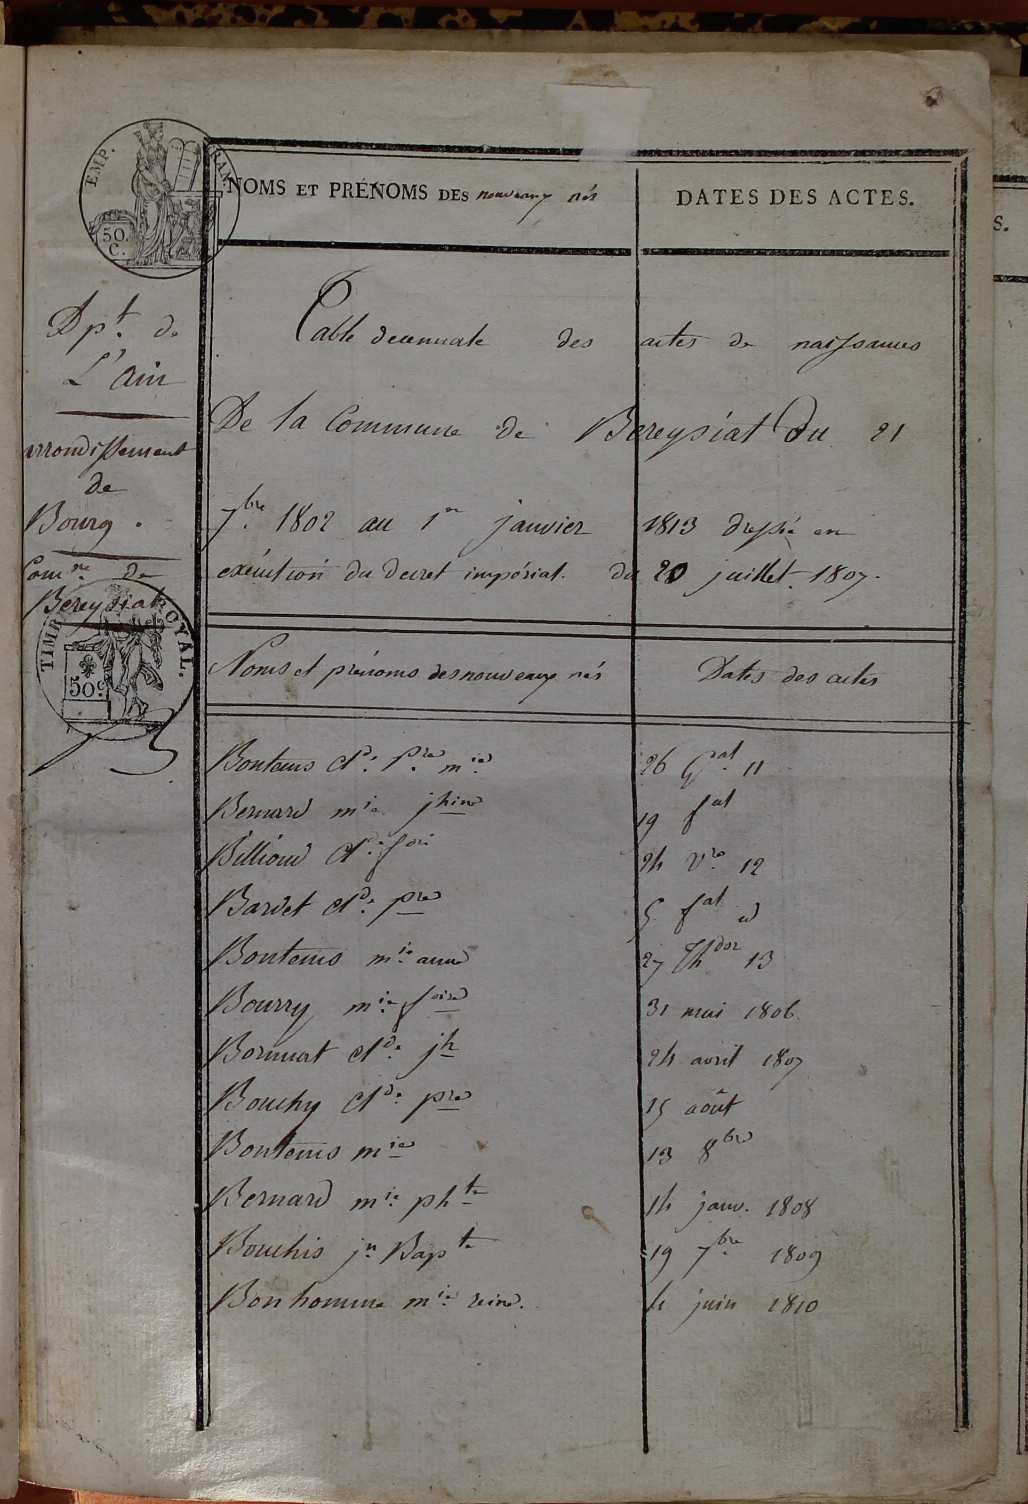 EMP. FRAN.
50. C.
NOMS ET PRÉNOMS DES nouveaux nés
DATES DES ACTES.
S.
Dpt. de
L'Ain
arrondissement
de
Bourg.
Com.ne de
Bereysiat
TIMBRE ROYAL.
50 c
Table decennale des actes de naissances
De la Commune de Bereysiat Du 21
7.bre 1802 au 1er janvier 1813 dressé en
exécution du decret impérial. du 20 juillet 1807.
Noms et prénoms des nouveaux nés Dates des actes
Bontems Cl.de p.re m.ie 26 G.nal 11
Bernard m.ie jhine 19 f.al
Billioud Cl.de f.ois 24 V.re 12
Bardet Cl.de pre 5 f.al d
Bontems m.ie anne 27 Th.dor 13
Bourry m.ie f.oise 31 mai 1806.
Bornuat Cl.de jh 24 avril 1807
Bouchy Cl.de pre 15 août
Bontems mie 13 8bre
Bernard m.ie ph.te 14 janv. 1808
Bouchis j.n Bap.te 19 7.bre 1809
Bonhomme m.ie reine. 4 juin 1810